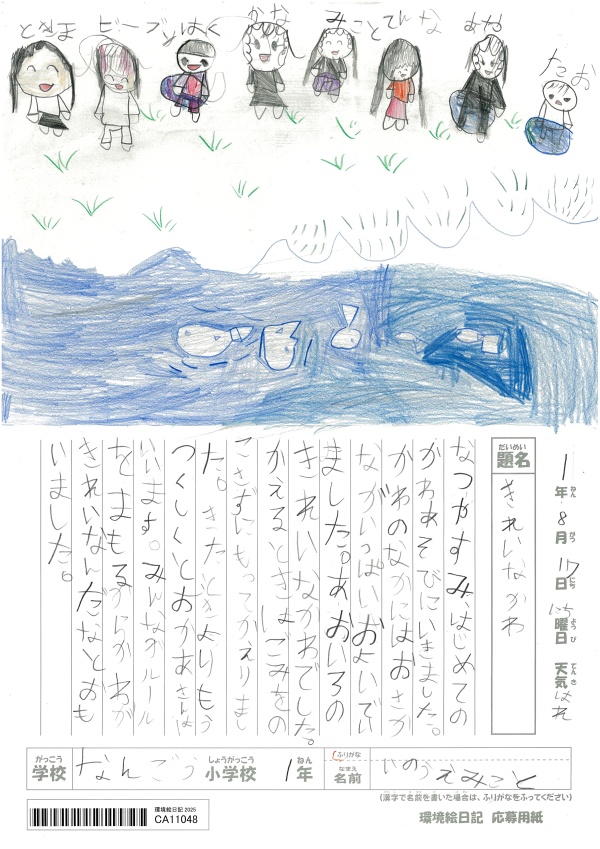 ときほ ビーブリはく かな みことてんな あや たお
1年 8月 17日 にち曜日 天気 はれ
ねん がつ にち ようび てんき
だいめい
題名
きれいなかわ
なつやすみ、はじめての
かわあそびにいきました。
かわのなかにはおさか
ながいっぱいおよいでい
ました。あおいろの
きれいなかわでした。
かえるときはごみをの
こさずにもってかえりまし
た。きたときよりもう
つくしくとおかあさんは
いいます。みんながルール
をまもるからかわが
きれいなんだなとおも
いました。
がっこう
学校
なんごう
しょうがっこう
小学校
1年
ねん
ふりがな
なまえ
名前
いのうえみこと
(漢字で名前を書いた場合は、ふりがなをふってください)
環境絵日記 2025
CA11048
環境絵日記 応募用紙